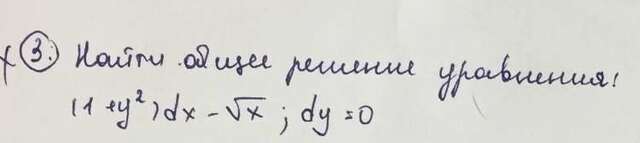 x 3. Найти общее решение уравнения!
(1+y²)dx-√x; dy=0